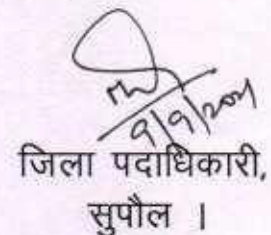 9/9/2021
जिला पदाधिकारी,
सुपौल ।